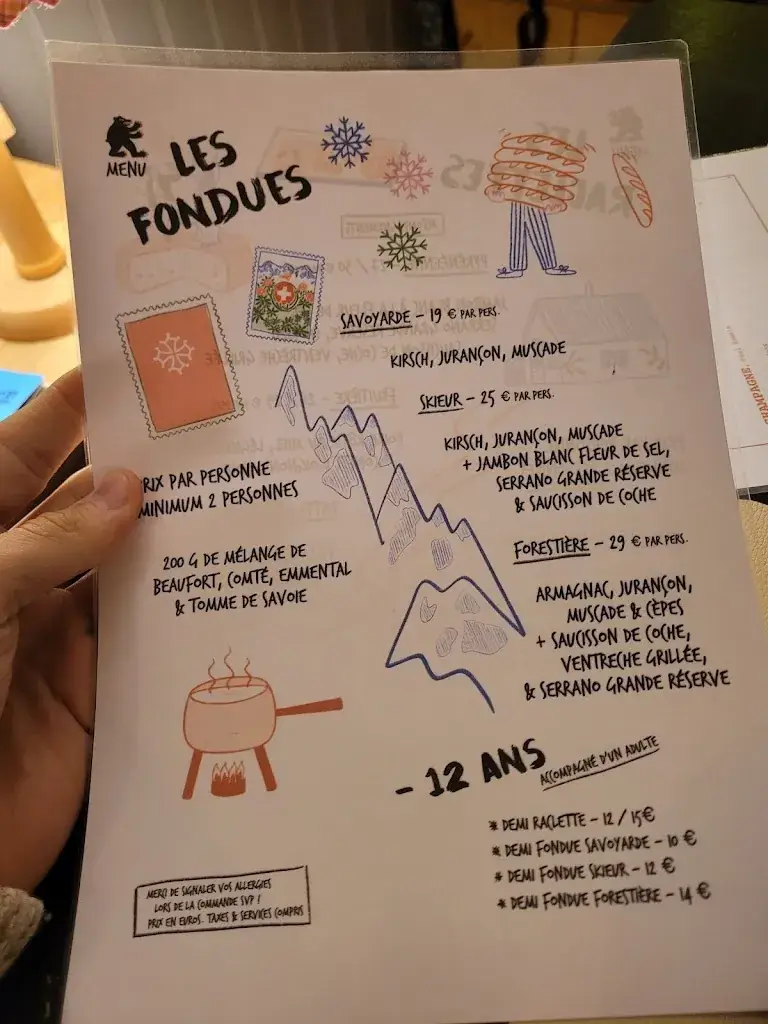 MENU
LES
FONDUES
SAVOYARDE - 19 € PAR PERS.
KIRSCH, JURANÇON, MUSCADE
SKIEUR - 25 € PAR PERS.
KIRSCH, JURANÇON, MUSCADE
+ JAMBON BLANC FLEUR DE SEL,
SERRANO GRANDE RÉSERVE
& SAUCISSON DE COCHE
FORESTIÈRE - 29 € PAR PERS.
ARMAGNAC, JURANÇON,
MUSCADE & CÈPES
+ SAUCISSON DE COCHE,
VENTRECHE GRILLÉE,
& SERRANO GRANDE RÉSERVE
PRIX PAR PERSONNE
MINIMUM 2 PERSONNES
200 G DE MÉLANGE DE
BEAUFORT, COMTÉ, EMMENTAL
& TOMME DE SAVOIE
- 12 ANS
ACCOMPAGNÉ D'UN ADULTE
* DEMI RACLETTE - 12 / 15€
* DEMI FONDUE SAVOYARDE - 10 €
* DEMI FONDUE SKIEUR - 12 €
* DEMI FONDUE FORESTIÈRE - 14 €
MERCI DE SIGNALER VOS ALLERGIES
LORS DE LA COMMANDE SVP !
PRIX EN EUROS. TAXES & SERVICES COMPRIS
CHAMPAGNE,